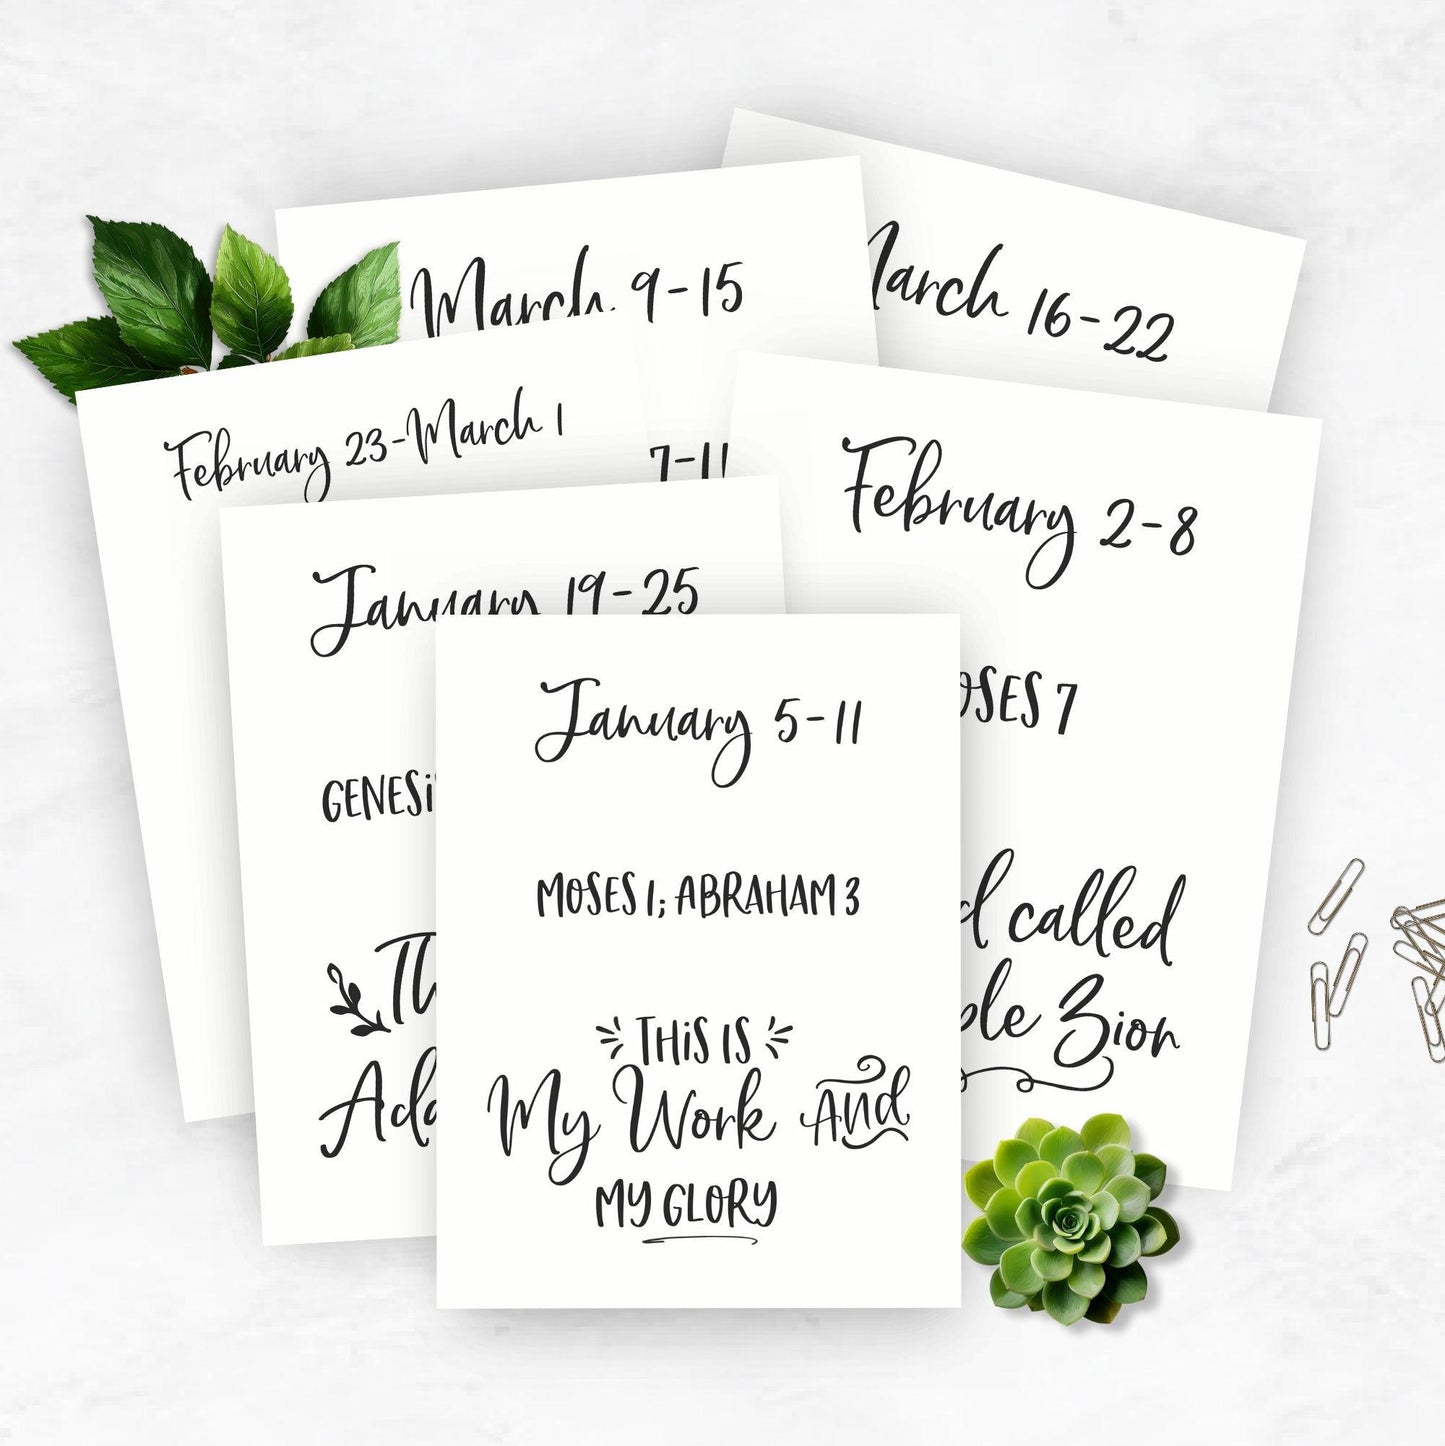 March 9-15
March 16-22
February 23-March 1
7-11
February 2-8
MOSES 7
called
Zion
January 19-25
January 5-11
MOSES 1; ABRAHAM 3
THIS IS
My Work AND
MY GLORY